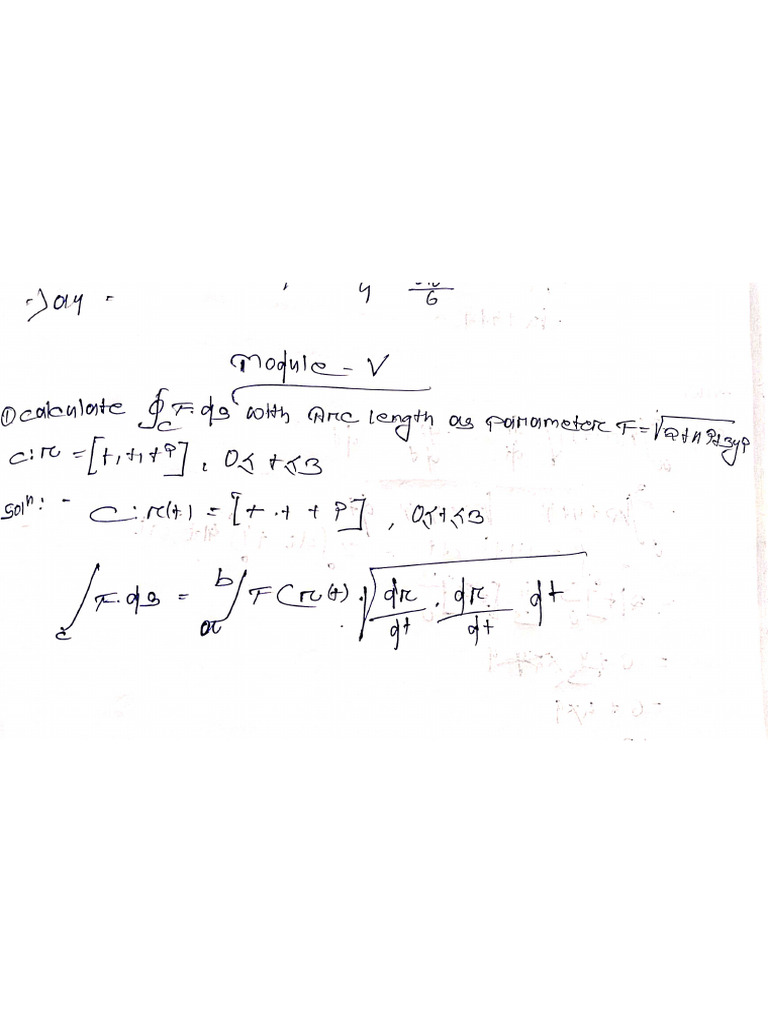 Module - V
① calculate ∮_C F.ds with Arc length as parameter F = √(2+x²+3y²
C: r = [t, t, t²], 0≤t≤3
Solⁿ: - C: r(t) = [t . t t²], 0≤t≤3
∫_c F.ds = ᵇ∫ F(r(t) . √(dr/dt . dr/dt) dt